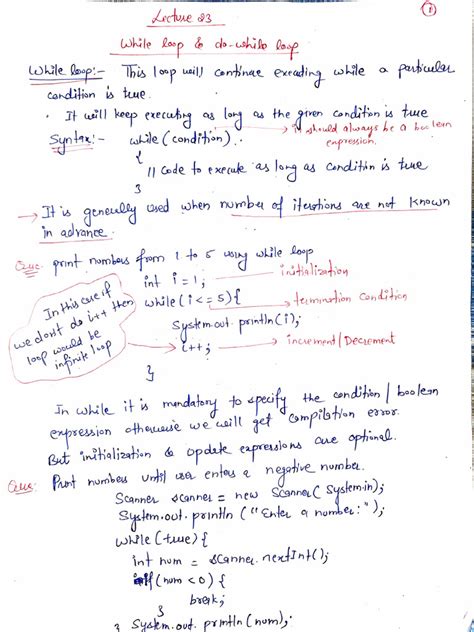 Lecture 23
①
While loop & do-while loop
While loop:- This loop will continue executing while a particular
condition is true.
• It will keep executing as long as the given condition is true
Syntax:- while (condition)
→ it should always be a boolean
expression.
{
// Code to execute as long as condition is true
}
→ It is generally used when number of iterations are not known
in advance.
Que: print numbers from 1 to 5 using while loop
int i = 1; → initialization
while (i <= 5) { → termination condition
System.out.println(i);
i++; → increment/Decrement
}
In this case if
we don't do i++ then
loop would be
infinite loop
In while it is mandatory to specify the condition/boolean
expression otherwise we will get compilation error.
But initialization & update expressions are optional.
Ques: Print numbers until user enters a negative number.
Scanner scanner = new Scanner(System.in);
System.out.println("Enter a number:");
while (true) {
int num = scanner.nextInt();
if (num < 0) {
break;
}
System.out.println(num);
}